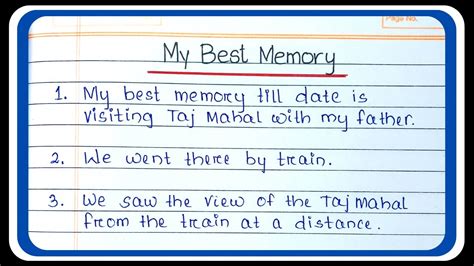 Page No.
My Best Memory
1. My best memory till date is
visiting Taj Mahal with my father.
2. We went there by train.
3. We saw the view of the Taj Mahal
from the train at a distance.